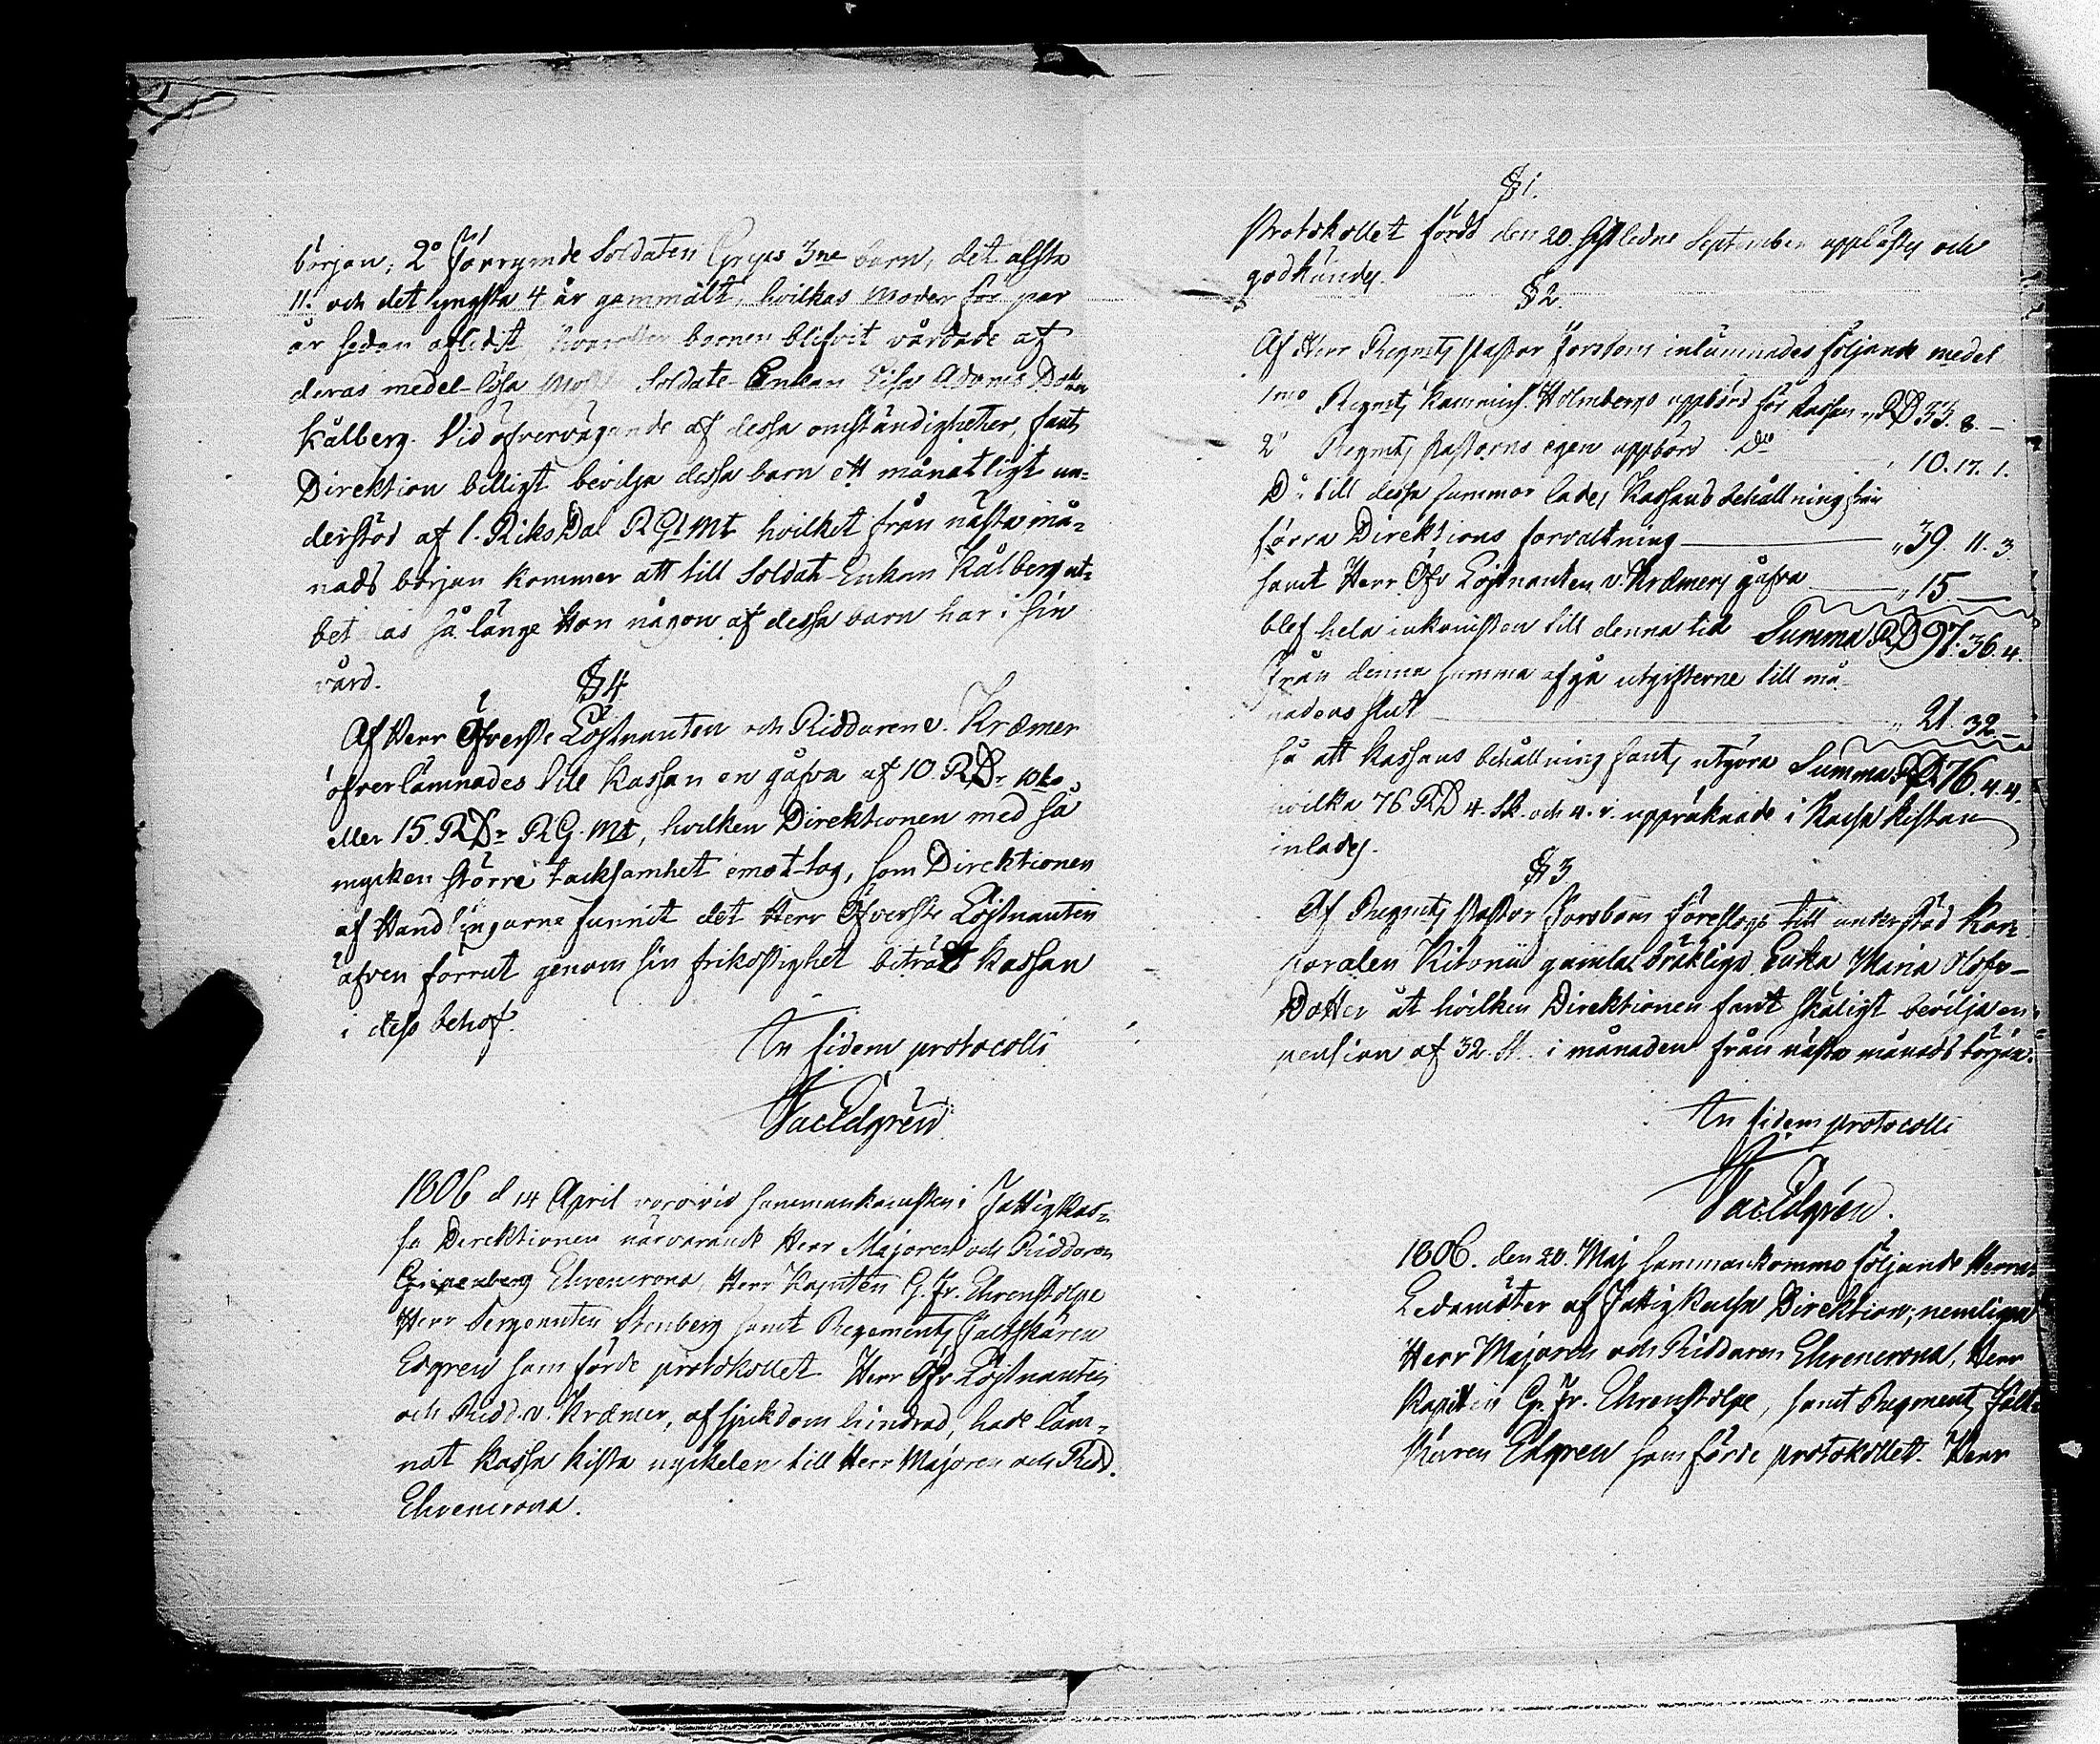 början, 2o Förrymde Soldaten Greys 3ne barn, det älsta
11. och det yngsta 4 år gammalt, hvilkas Moder för par
år sedan aflidit hvarefter barnen blifvit vårdade af
deras medel-lösa Soldate-Enkan Lisa Adams Dotter
Kålberg. Vid öfvervägande af dessa omständigheter, fants
Direktion billigt bevilja dessa barn ett månatligt un-
derstöd af 1. RiksDal RGMt hvilket från nästa må-
nads början kommer att till Soldat-Enkan Kålberg ut-
bet as så länge Hon någon af dessa barn har i sin
vård.
§ 4
Af Herr Öfverste Löjtnanten och Riddaren v. Kræmer
öfverlämnades till Kassan en gåfva af 10. RDr Bko
eller 15. RDr RG. Mt, hvilken Direktionen med så
mycken större tacksamhet emot-tog, som Direktionen
af Handlingarne funnit det Herr Öfverste Löjtnanten
äfven förrut genom sin frikostighet biträdt Kassan
i dess behof.
In fidem protocolli
Jac Edgren
1806 d 14 April voro vid sammankomsten i Fattigkas-
sa Direktionen närvarande Herr Majoren och Riddaren
Gripenberg Ehrencrona, Herr Kapiten G. Fr. Ehrenstolpe
Herr Sergeanten Stenberg samt Regements Fältskären
Edgren som förde protokollet. Herr Öfv. Löjtnanten
och Ridd. v. Kræmer, af sjukdom hindrad, hade läm-
nat Kassa kista nyckelen till Herr Majoren och Ridd.
Ehrencrona.
§ 1.
Protokollet fördt den 20. sistledne September upplästes och
godkändes.
§ 2.
Af Herr Regmts Pastor Forsbom inlämnades följande medel
1mo Regmts Kammeri. Holmbergs uppbörd för Kassan " RD 33. 8. -
2o Regmts Pastorns egen uppbörd Do " 10. 17. 1.
Då till dessa summor lades Kassans behållning från
förra Direktions förvaltning " 39. 11. 3.
samt Herr Öfv Löjtnanten v. Kræmers gåfva " 15. —
blef hela inkomsten till denna tid Summa RD 97. 36. 4.
Från denna summa afgå utgifterne till må-
nadens slut " 21. 32. -
så att Kassans behållning fants utgöra Summa RD 76. 4. 4.
hvilka 76 RD 4. sk. och 4. r. uppräknade i Kassa kistan
inlades.
§ 3
Af Regmts Pastor Forsbom föreslogs till understöd Kor-
poralen Kitonii gamla bräkliga Enka Maria Olofs-
Dotter åt hvilken Direktionen fant skäligt bevilja en
pension af 32. sk. i månaden från nästa månads början.
In fidem protocolli
Jac Edgren.
1806. den 20. Maj sammankommo följande Herrar
Ledamöter af Fattig Kassa Direktion; nemligen
Herr Majoren och Riddaren Ehrencrona, Herr
Kapiten G. Fr. Ehrenstolpe, samt Regments Fält-
skären Edgren som förde protokollet. Herr